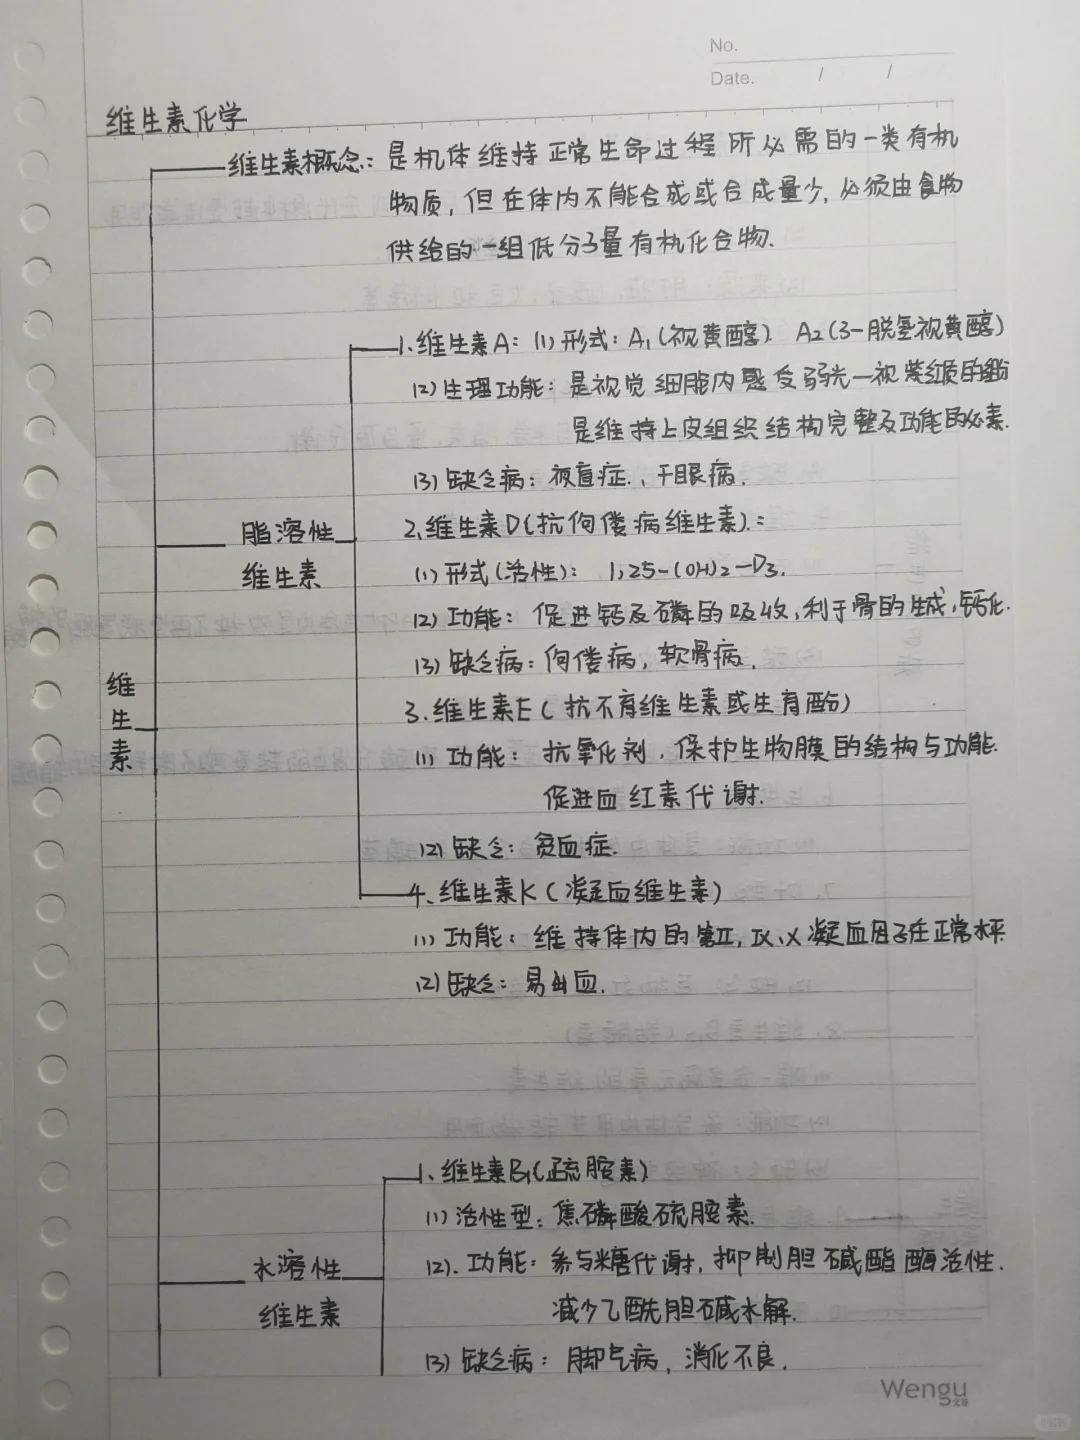 No.
Date. / /
维生素化学
维生素概念:是机体维持正常生命过程所必需的一类有机
物质,但在体内不能合成或合成量少,必须由食物
供给的一组低分子量有机化合物.
1.维生素A:(1)形式:A₁(视黄醇) A₂(3-脱氢视黄醇)
(2)生理功能:是视觉细胞内感受弱光—视紫红质的组份
是维持上皮组织结构完整及功能的必素.
(3)缺乏病:夜盲症.、干眼病.
脂溶性
维生素
2.维生素D(抗佝偻病维生素):
(1)形式(活性): 1,25-(OH)₂-D₃.
(2)功能:促进钙及磷的吸收,利于骨的生成,钙化.
(3)缺乏病:佝偻病,软骨病.
维生素
3.维生素E(抗不育维生素或生育酚)
(1)功能:抗氧化剂.保护生物膜的结构与功能.
促进血红素代谢.
(2)缺乏:贫血症.
4.维生素K(凝血维生素)
(1)功能:维持体内的第Ⅱ,Ⅸ、Ⅹ凝血因子在正常水平
(2)缺乏:易出血.
1.维生素B₁(硫胺素)
(1)活性型:焦磷酸硫胺素.
水溶性
维生素
(2).功能:参与糖代谢,抑制胆碱酯酶活性.
减少乙酰胆碱水解.
(3)缺乏病:脚气病,消化不良.
Wengu
文谷